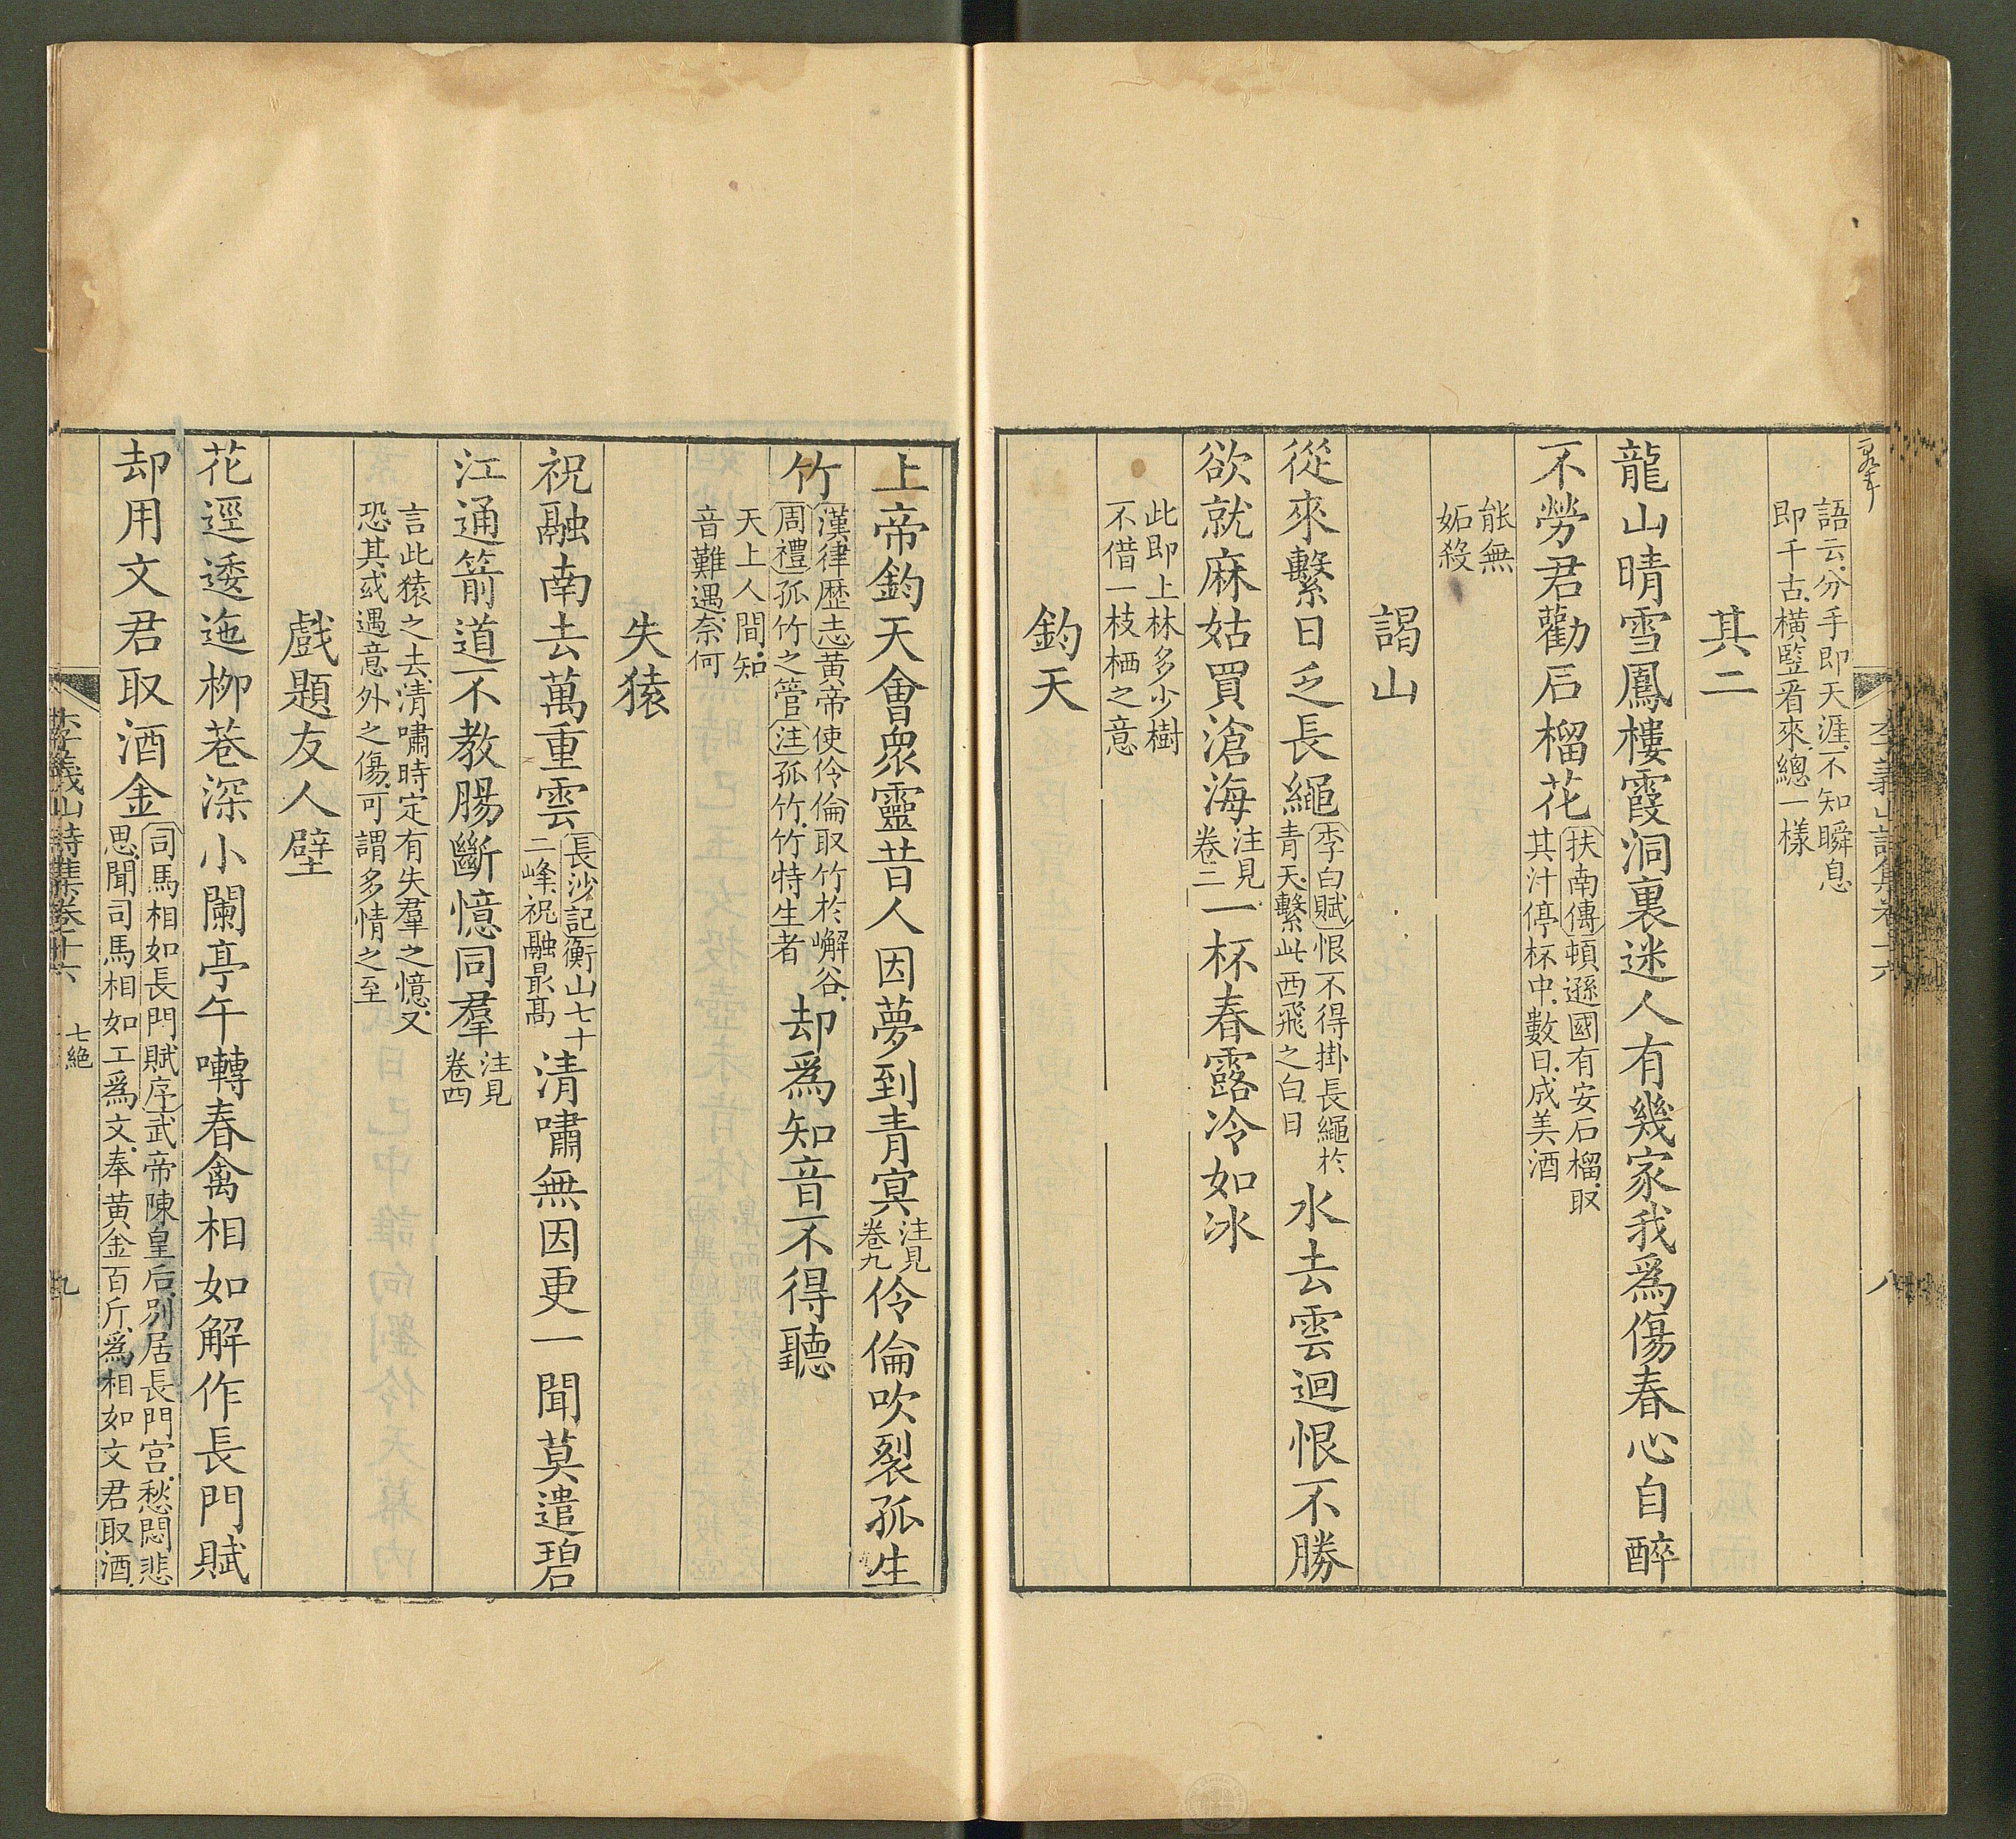 李義山詩集卷十六
八
語云分手即天涯不知瞬息
即千古橫豎看來總一樣
其二
龍山晴雪鳳樓霞洞裏迷人有幾家我爲傷春心自醉
不勞君勸石榴花扶南傳頓遜國有安石榴取
其汁停杯中數日成美酒
能無
妬殺
謁山
從來繫日乏長繩李白賦恨不得掛長繩於
青天繫此西飛之白日水去雲迴恨不勝
欲就麻姑買滄海注見
卷二一杯春露冷如冰
此即上林多少樹
不借一枝栖之意
鈞天
上帝鈞天會衆靈昔人因夢到青冥注見
卷九伶倫吹裂孤生
竹漢律歷志黃帝使伶倫取竹於嶰谷
周禮孤竹之管注孤竹竹特生者却爲知音不得聽
天上人間知
音難遇奈何
失猿
祝融南去萬重雲長沙記衡山七十
二峰祝融最高清嘯無因更一聞莫遣碧
江通箭道不教腸斷憶同羣注見
卷四
言此猿之去清嘯時定有失羣之憶又
恐其或遇意外之傷可謂多情之至
戲題友人壁
花逕逶迤柳巷深小闌亭午囀春禽相如解作長門賦
却用文君取酒金司馬相如長門賦序武帝陳皇后別居長門宮愁悶悲
思聞司馬相如工爲文奉黃金百斤爲相如文君取酒
李義山詩集卷十六
七絕
九